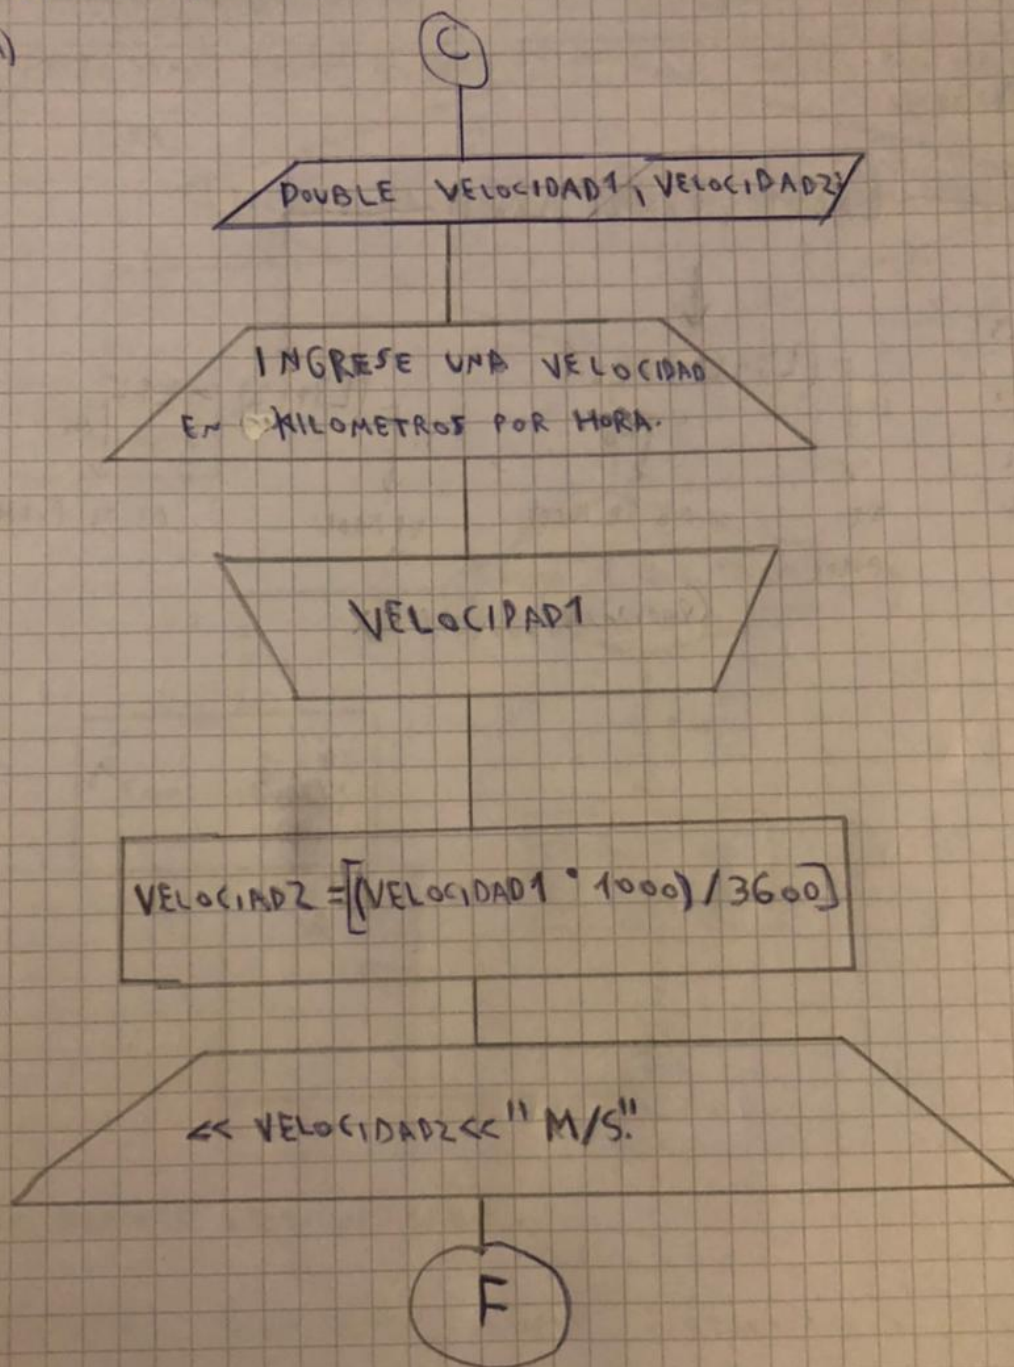 C
DOUBLE VELOCIDAD1, VELOCIDAD2;
INGRESE UNA VELOCIDAD
EN KILOMETROS POR HORA.
VELOCIDAD1
VELOCIAD2 = [(VELOCIDAD1 * 1000) / 3600]
<< VELOCIDAD2 << " M/S."
F